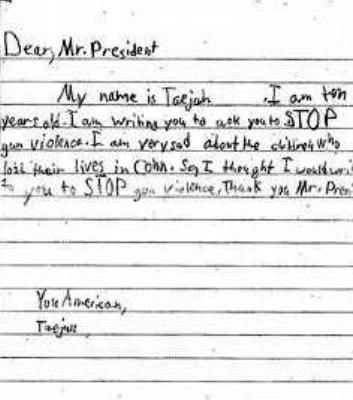 Dear, Mr. President
My name is Taejah . I am ten
years old. I am writing you to ask you to STOP
gun violence. I am very sad about the children who
lost their lives in Conn. So, I thought I would wri
to you to STOP gun violence. Thank you Mr. Presi
Your American,
Taejah